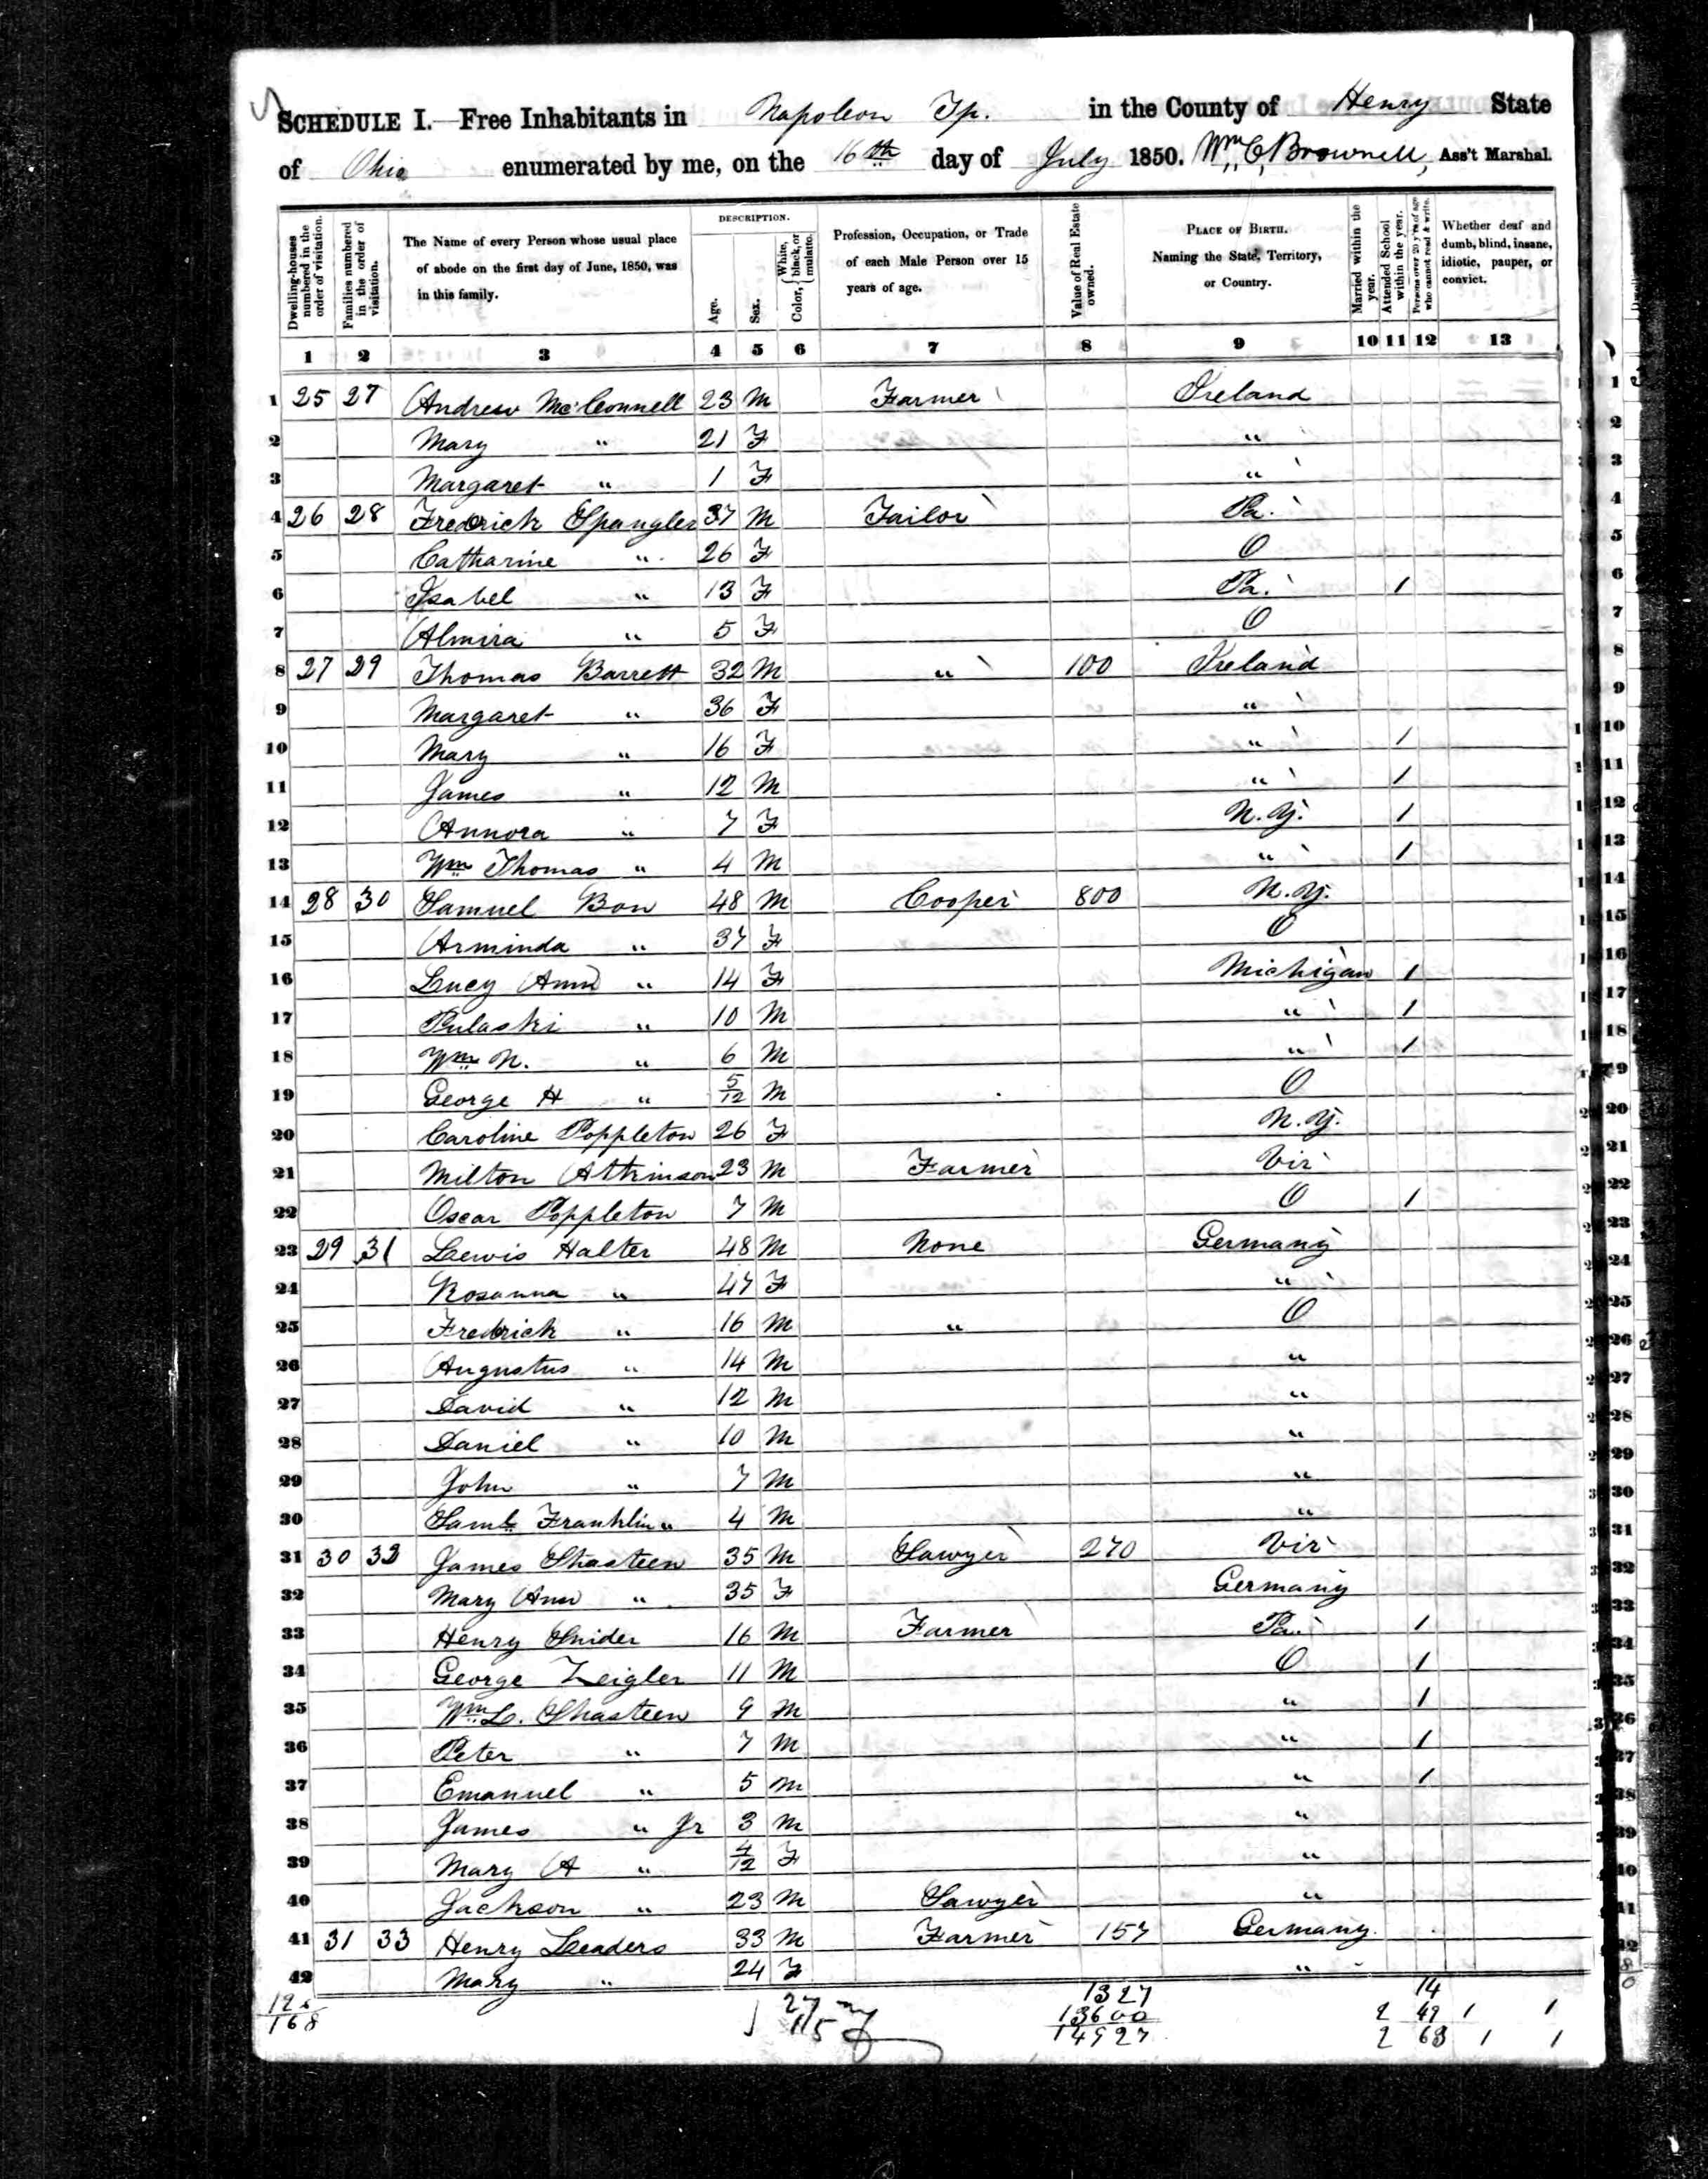 SCHEDULE I.—Free Inhabitants in Napoleon Tp. in the County of Henry State
of Ohio enumerated by me, on the 16th day of July 1850. Wm C. Brownell, Ass't Marshal.
Dwelling-houses numbered in the order of visitation.
Families numbered in the order of visitation.
The Name of every Person whose usual place of abode on the first day of June, 1850, was in this family.
DESCRIPTION.
Age.
Sex.
Color, { White, black, or mulatto.
Profession, Occupation, or Trade of each Male Person over 15 years of age.
Value of Real Estate owned.
PLACE OF BIRTH. Naming the State, Territory, or Country.
Married within the year.
Attended School within the year.
Persons over 20 y'rs of age who cannot read & write.
Whether deaf and dumb, blind, insane, idiotic, pauper, or convict.
1 2 3 4 5 6 7 8 9 10 11 12 13
1 25 27 Andrew McConnell 23 M Farmer Ireland
2 Mary " 21 F "
3 Margaret " 1 F "
4 26 28 Fredrick Spangler 37 M Tailor Pa.
5 Catharine " 26 F O
6 Isabel " 13 F Pa. 1
7 Almira " 5 F O
8 27 29 Thomas Barrett 32 M " 100 Ireland
9 Margaret " 36 F "
10 Mary " 16 F " 1
11 James " 12 M " 1
12 Annora " 7 F N.Y. 1
13 Wm Thomas " 4 M " 1
14 28 30 Samuel Bon 48 M Cooper 800 N.Y.
15 Arminda " 37 F O
16 Lucy Ann " 14 F Michigan 1
17 Pulaski " 10 M " 1
18 Wm N. " 6 M " 1
19 George H " 5/12 M O
20 Caroline Poppleton 26 F N.Y.
21 Milton Atkinson 23 M Farmer Vir
22 Oscar Poppleton 7 M O 1
23 29 31 Lewis Halter 48 M None Germany
24 Rosanna " 47 F "
25 Fredrick " 16 M " O
26 Augustus " 14 M "
27 David " 12 M "
28 Daniel " 10 M "
29 John " 7 M "
30 Saml Franklin " 4 M "
31 30 32 James Shasteen 35 M Sawyer 270 Vir
32 Mary Ann " 35 F Germany
33 Henry Snider 16 M Farmer Pa. 1
34 George Zeigler 11 M O 1
35 Wm L. Shasteen 9 M " 1
36 Peter " 7 M " 1
37 Emanuel " 5 M " 1
38 James " Jr 3 M "
39 Mary A " 4/12 F "
40 Jackson " 23 M Sawyer "
41 31 33 Henry Leaders 33 M Farmer 157 Germany.
42 Mary " 24 F "
27 m 1327 14
126 15 f 13600 2 49 1 1
168 14927 2 63 1 1